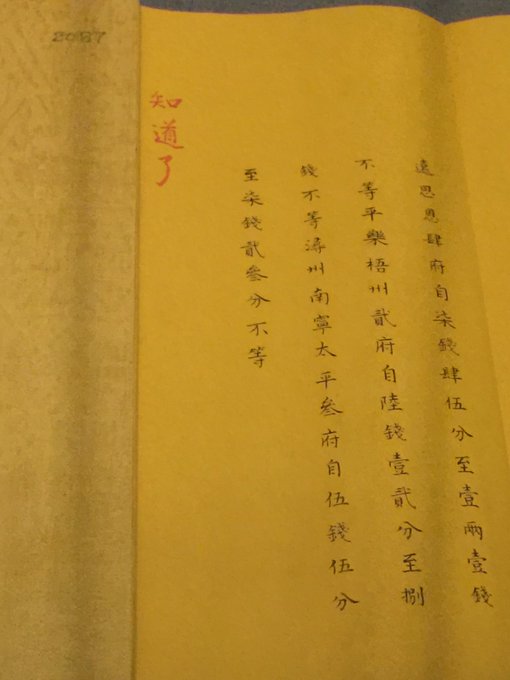 遠思恩肆府自柒錢肆伍分至壹兩壹錢
不等平樂梧州貳府自陸錢壹貳分至捌
錢不等潯州南寧太平叄府自伍錢伍分
至柒錢貳叄分不等
知道了